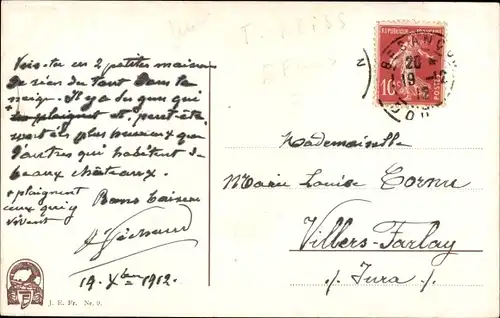 Vois-tu ces 2 petites maisons
de rien du tout dans la
neige. Il y a des gens qui
plaignent et peut-être
sont-ils plus heureux que
d'autres qui habitent de
beaux châteaux.
+ plaignent
ceux qui y
vivent
Bons baisers
19 Xbre 1912.
J. E. Fr. Nr. 9.
REPUBLIQUE FRANÇAISE
10c
POSTES
BESANÇON
20
19 -12
12
DOUBS
Mademoiselle
Marie Louise Cornu
Villers-Farlay
./. Jura /.